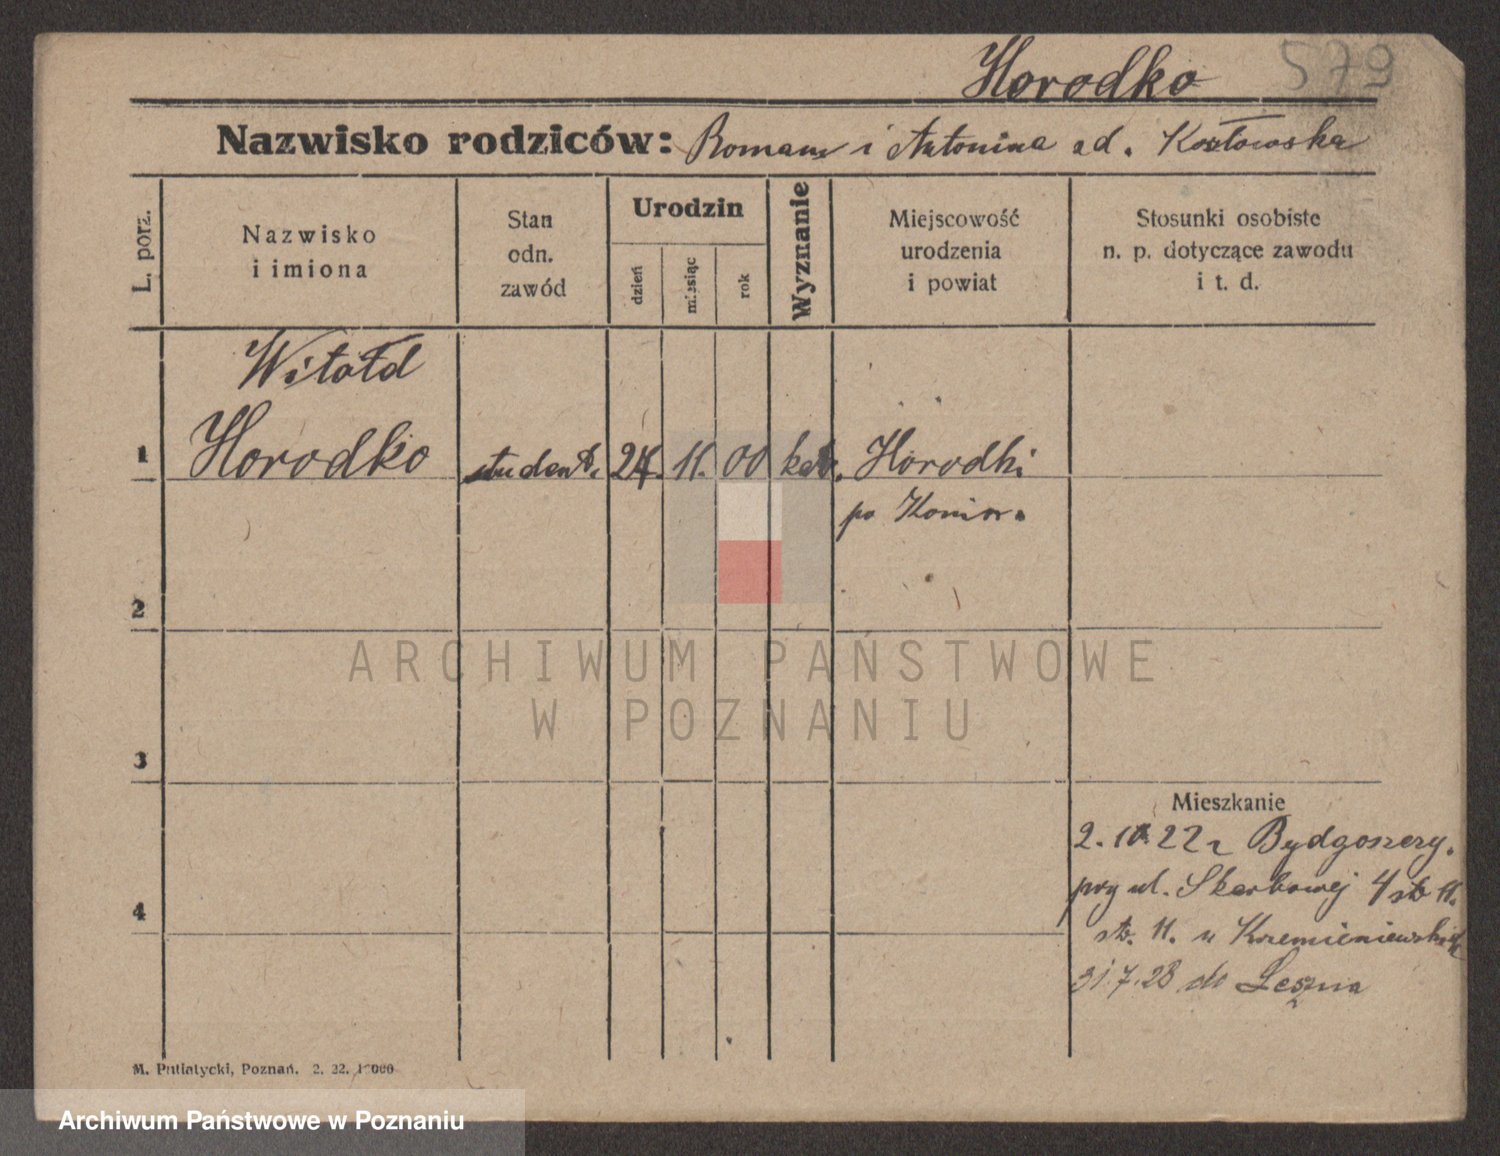 Horodko 579
Nazwisko rodziców: Roman i Antonina
L. porz.
Nazwisko
i imiona
Stan
odn.
zawód
Urodzin
dzień
miesiąc
rok
Wyznanie
Miejscowość
urodzenia
i powiat
Stosunki osobiste
n. p. dotyczące zawodu
i t. d.
Witołd
1 Horodko student. 24. 11. 00 kat. Horodki
po
2
ARCHIWUM PAŃSTWOWE
W POZNANIU
3
Mieszkanie
2. 22 r Bydgoszczy.
przy ul. Skarbowej 4
4
u
31.7.28 do Leszna
M. Putiatycki, Poznań. 2. 22.
Archiwum Państwowe w Poznaniu